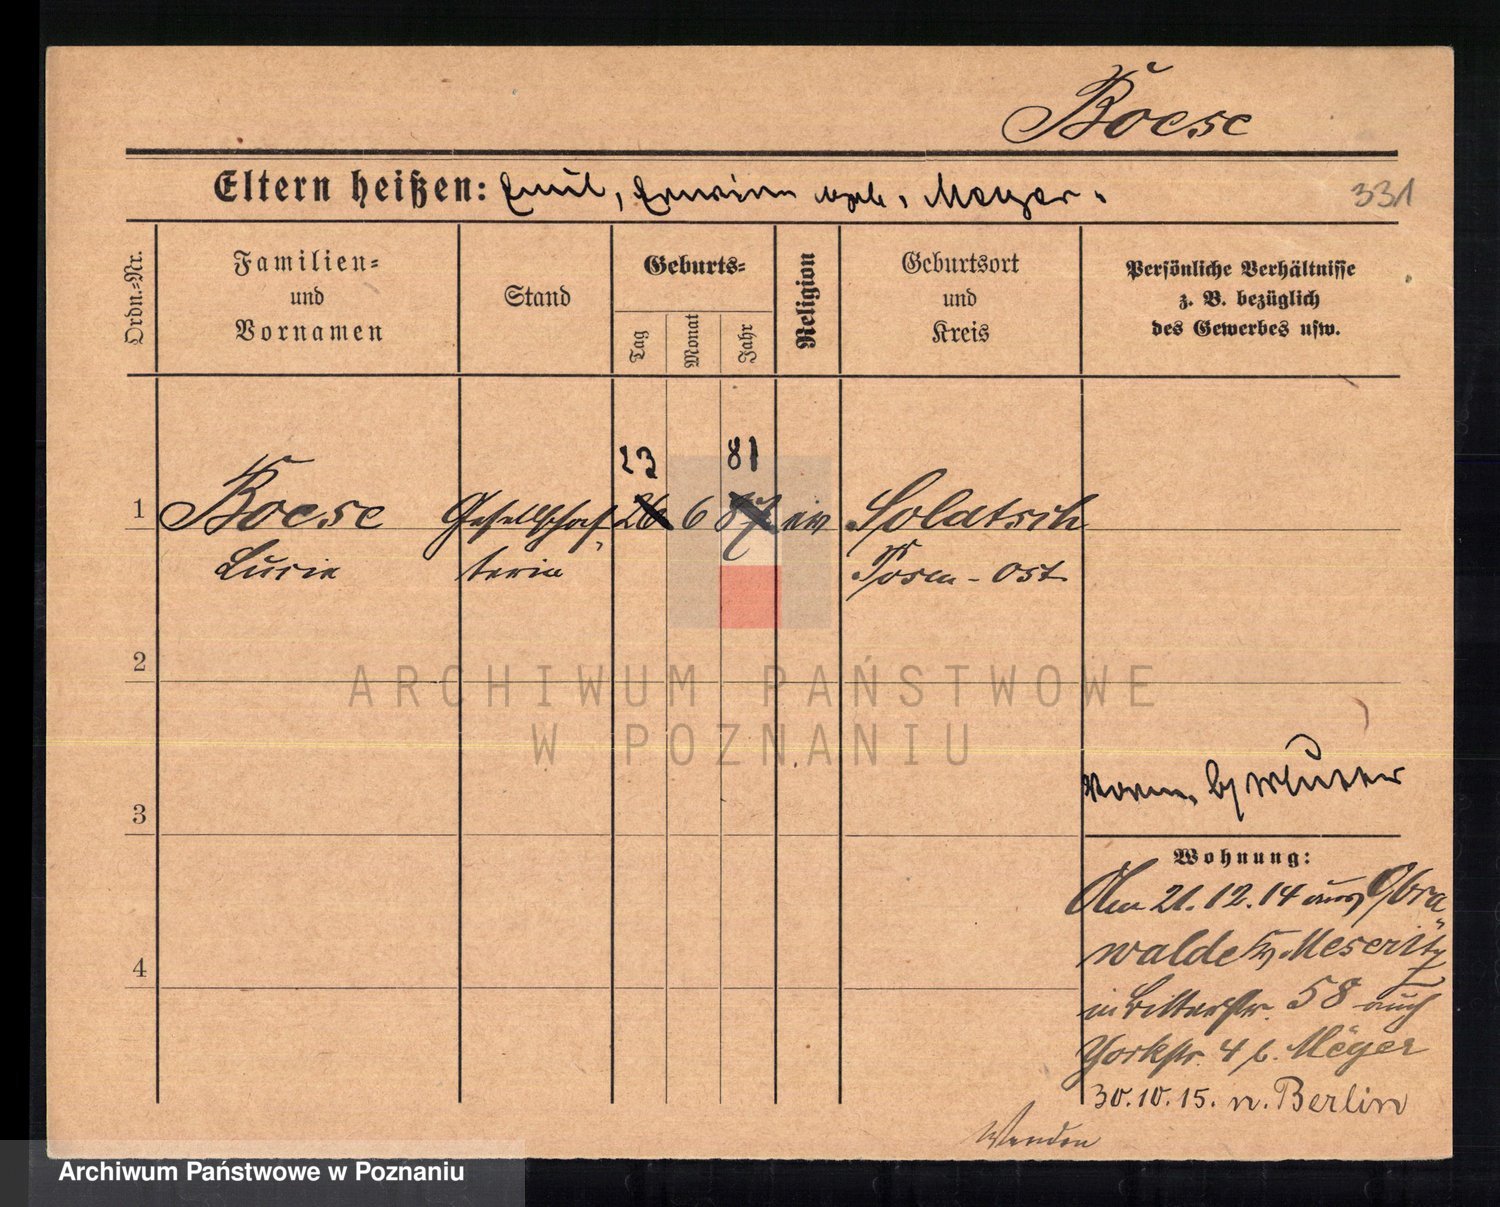 Boese
Eltern heißen: Emil, Erwine geb. Meyer.
331
Ordn.=Nr.
Familien=
und
Vornamen
Stand
Geburts=
Tag
Monat
Jahr
Religion
Geburtsort
und
Kreis
Persönliche Verhältnisse
z. B. bezüglich
des Gewerbes usw.
23 81
1 Boese Gesellschaf- 26 6 87 ev Solatsch
Lucie terin Posen - Ost
2
ARCHIWUM PAŃSTWOWE
W POZNANIU
3
Wohnung:
Am 21.12.14 aus Obra-
walde b. Meseritz
in Ritterstr. 58 auch
Yorkstr. 4 b. Meyer
30.10.15. n. Berlin
4
Wenden
Archiwum Państwowe w Poznaniu